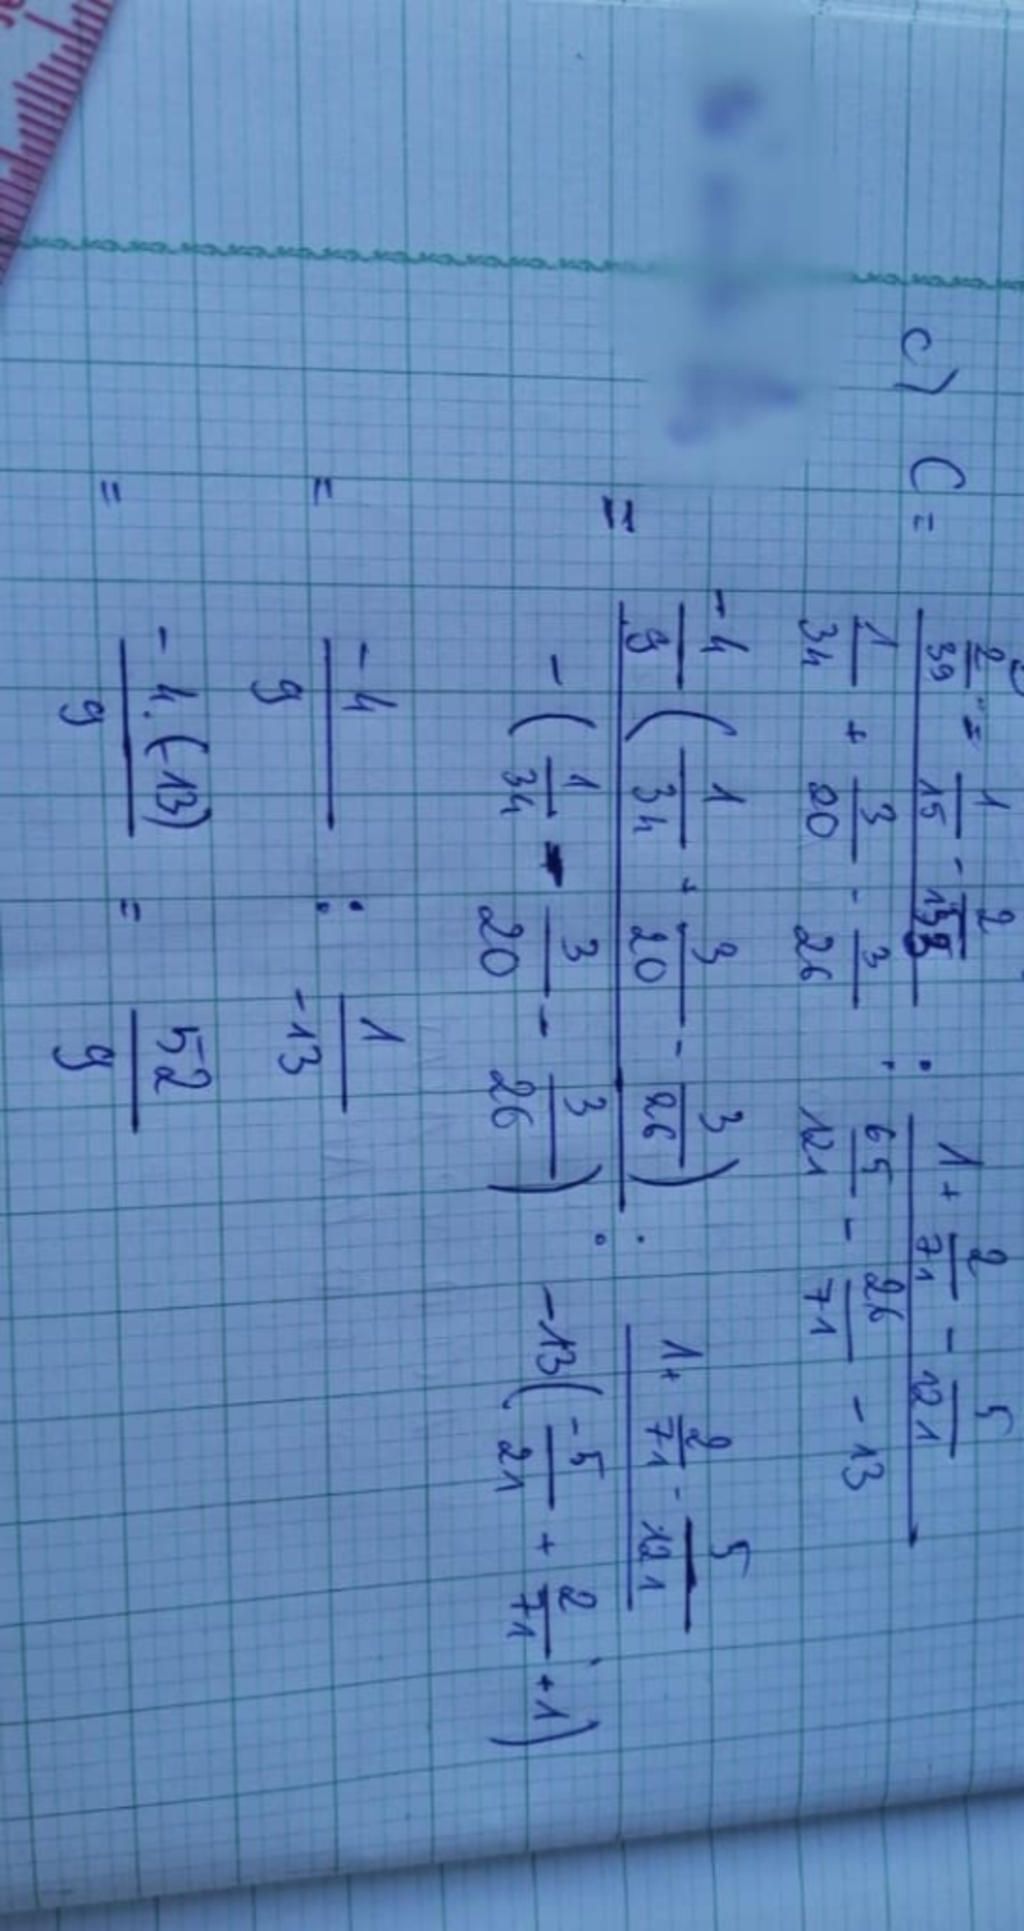 c) C = (2/39 - 1/15 - 2/153) / (1/34 + 3/20 - 3/26) : (1 + 2/71 - 5/121) / (65/121 - 26/71 - 13)
= (-4/9 (1/34 + 3/20 - 3/26)) / (-(1/34 - 3/20 - 3/26)) : (1 + 2/71 - 5/121) / (-13(-5/21 + 2/71 + 1))
= -4/9 : 1/-13
= -4.(-13)/9 = 52/9